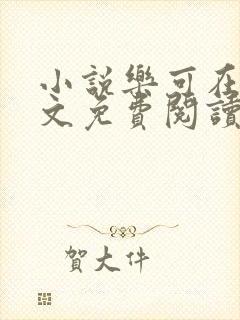 小說樂可在
文免費閱讀
賀大件